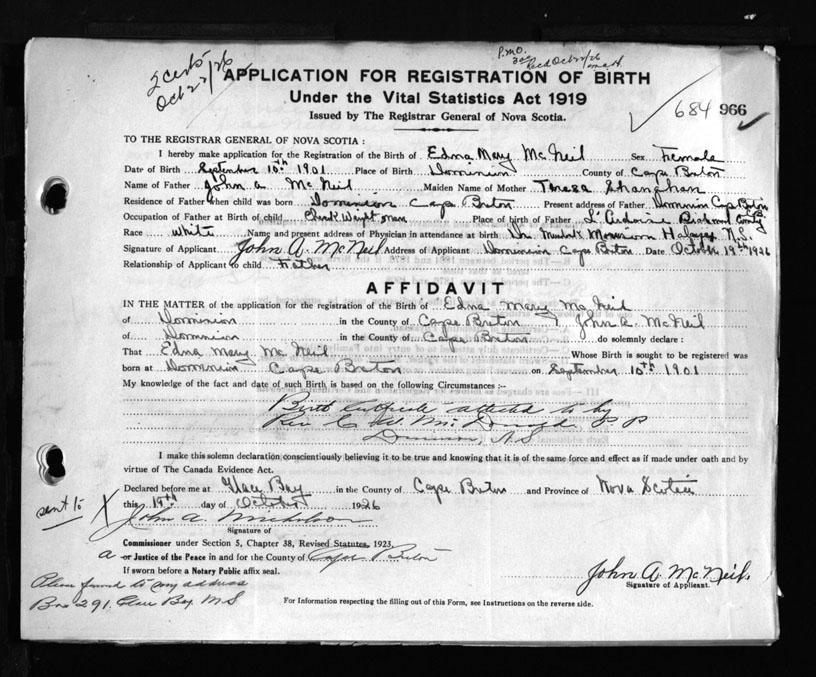 2 certs
Oct 22/26
P.M.O.
Recd Oct 22/26
APPLICATION FOR REGISTRATION OF BIRTH
Under the Vital Statistics Act 1919
Issued by The Registrar General of Nova Scotia.
684 966
TO THE REGISTRAR GENERAL OF NOVA SCOTIA :
I hereby make application for the Registration of the Birth of Edna Mary McNeil Sex Female
Date of Birth September 10th 1901 Place of Birth Dominion County of Cape Breton
Name of Father John A. McNeil Maiden Name of Mother Teresa Shanahan
Residence of Father when child was born Dominion Cape Breton Present address of Father Dominion Cape Breton
Occupation of Father at Birth of child Check Weighman Place of birth of Father L'Ardoise Richmond County
Race White Name and present address of Physician in attendance at birth Morrison Halifax N.S.
Signature of Applicant John A. McNeil Address of Applicant Dominion Cape Breton Date October 19th 1926
Relationship of Applicant to child Father
AFFIDAVIT
IN THE MATTER of the application for the registration of the Birth of Edna Mary McNeil
of Dominion in the County of Cape Breton I John A. McNeil
of Dominion in the County of Cape Breton do solemnly declare :
That Edna Mary McNeil Whose Birth is sought to be registered was
born at Dominion Cape Breton on September 10th 1901
My knowledge of the fact and date of such Birth is based on the following Circumstances :—
Birth Certificate attested to by
Rev. C. McDonald P P
Dominion, N.S
I make this solemn declaration conscientiously believing it to be true and knowing that it is of the same force and effect as if made under oath and by
virtue of The Canada Evidence Act.
Declared before me at Glace Bay in the County of Cape Breton and Province of Nova Scotia
sent to X this 19th day of October 1926
John A.
Signature of
Commissioner under Section 5, Chapter 38, Revised Statutes, 1923.
a or Justice of the Peace in and for the County of Cape Breton
If sworn before a Notary Public affix seal.
John A. McNeil.
Signature of Applicant.
Please forward to my address
Box 291, Glace Bay N S
For Information respecting the filling out of this Form, see Instructions on the reverse side.